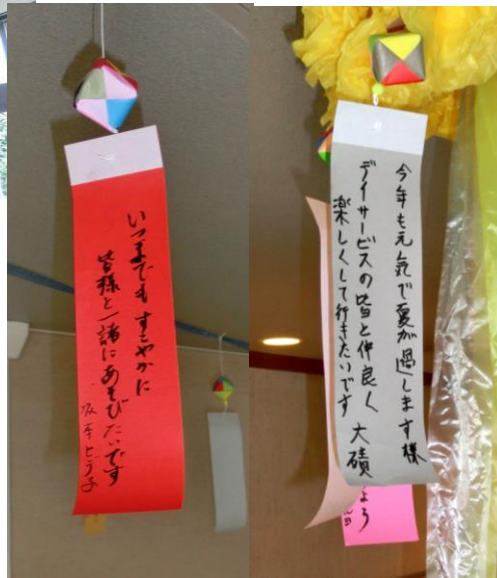 いつまでもすこやかに
皆様と一諸にあそびたいです
今年も元気で夏が過します様
デイサービスの皆と仲良く
楽しくして行きたいです
大磧